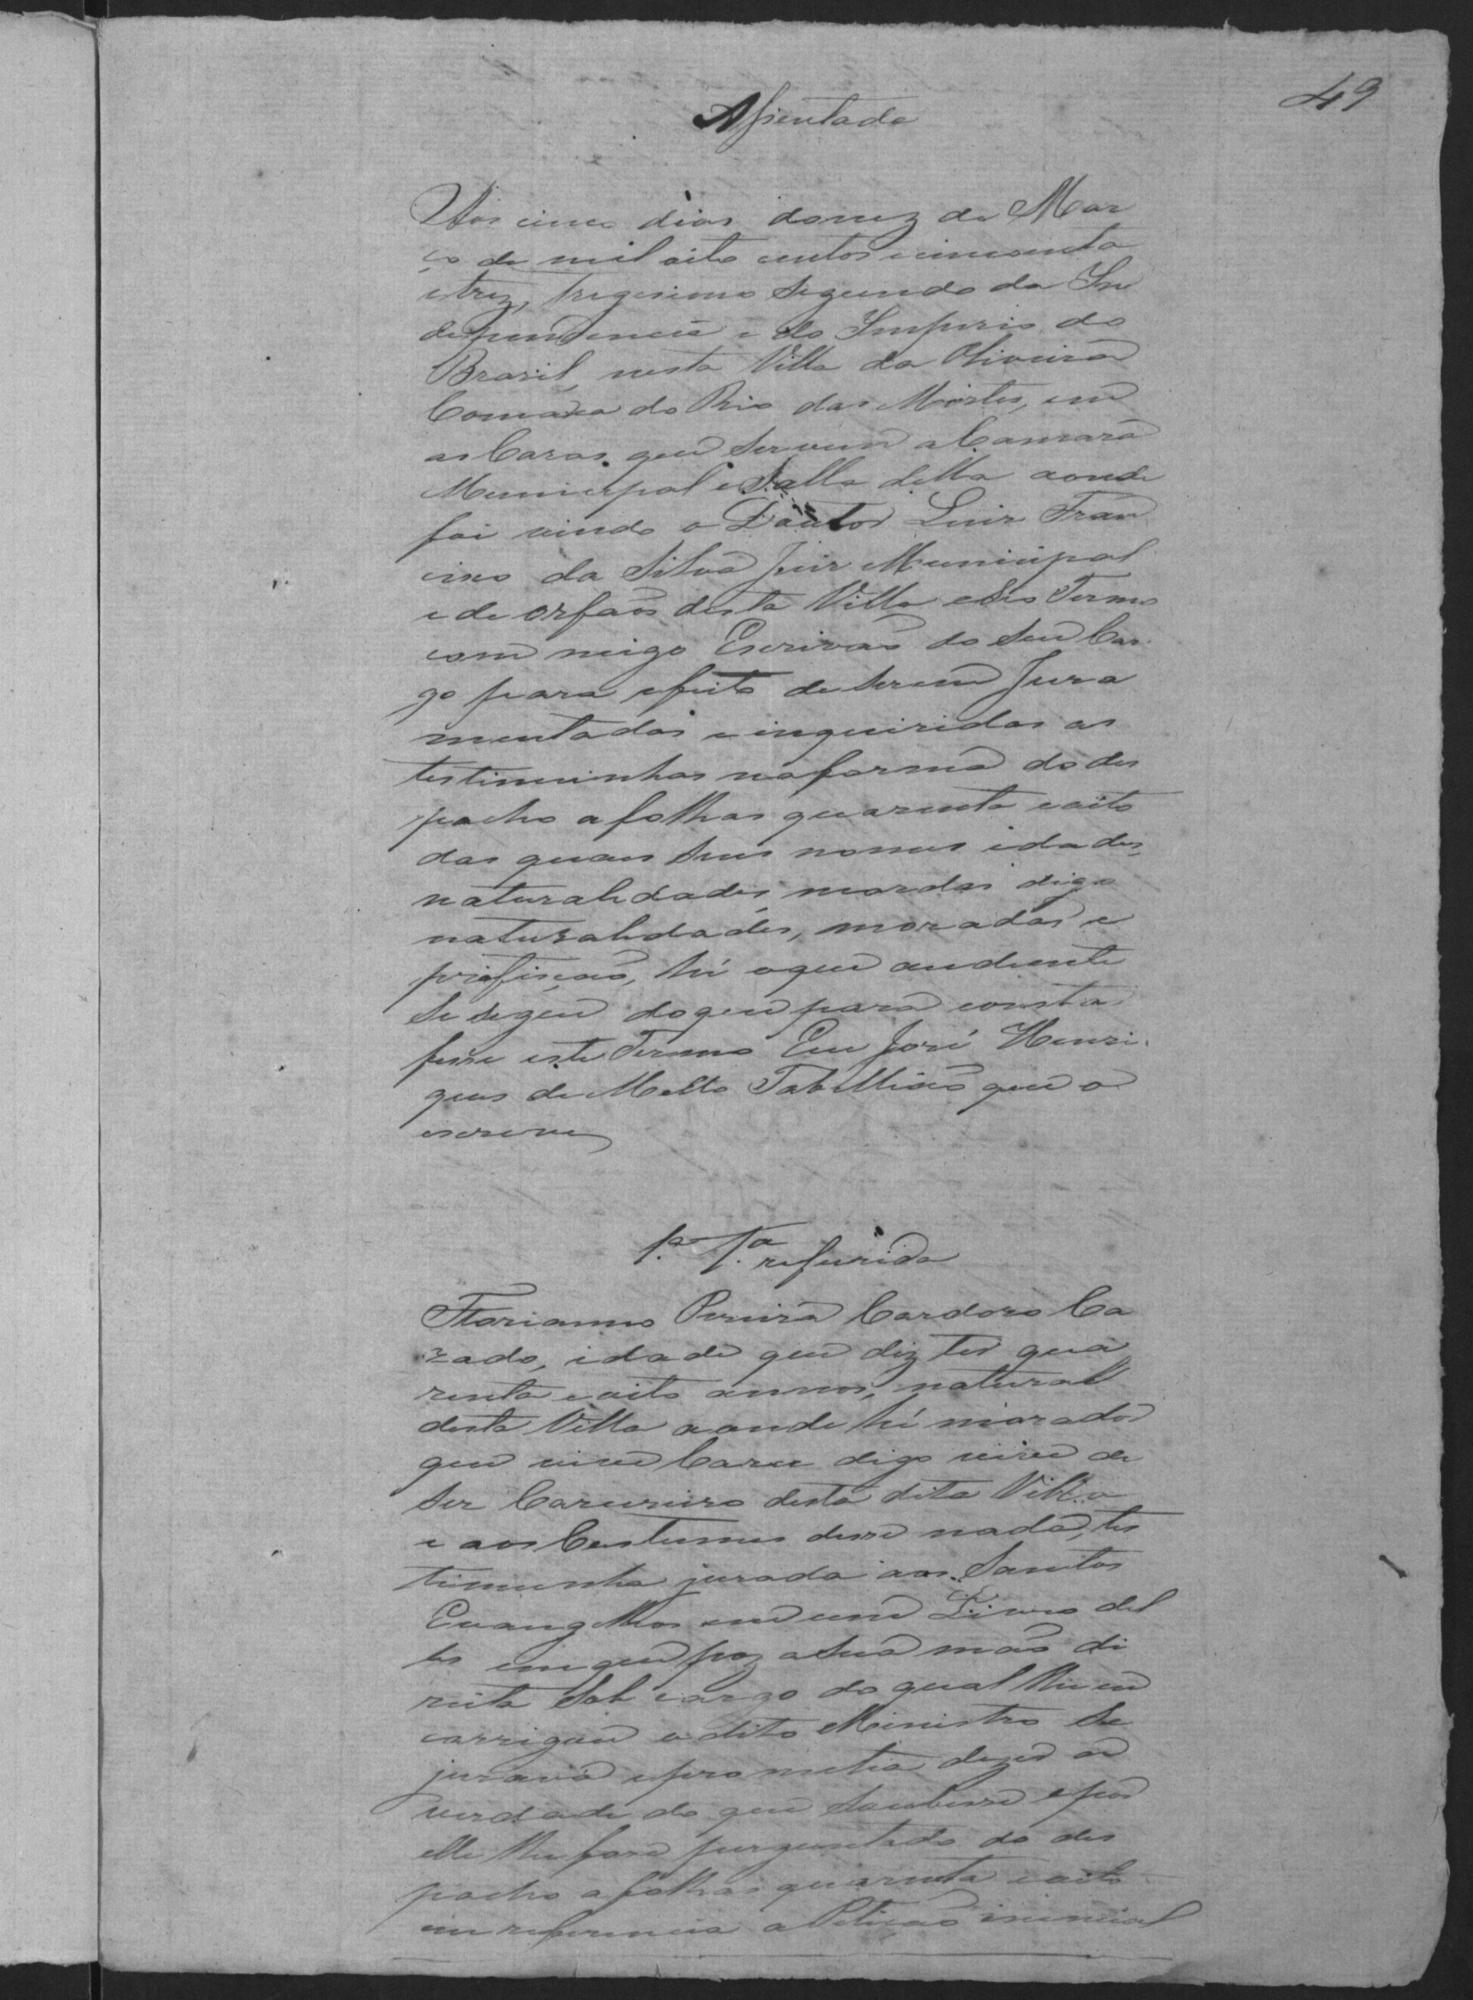 49
Assentada
Aos cinco dias do mez de Mar
ço de mil oito centos e cincoenta
e trez, trigesimo Segundo da In
dependencia e do Imperio do
Brasil, nesta Villa da Oliveira
Comarca do Rio das Mortes, em
as Casas que Servem a Camara
Municipal e Salla della aonde
foi vindo o Doutor Luis Fran
cisco da Silva Juis Municipal
e de orfaos desta Villa e Seo Termo
com migo Escrivaõ do Seu Car
go para efeito de Serem Jura
mentados e inqueiridas as
testimuinhas na forma do des
pacho a folhas quarenta e oito
das quaes Seus nomes idades,
naturalidades, mordas digo
naturalidades, moradas e
profiçaõ, hé o que ao diante
Se Segue do que para constar
fesse este Termo Eu José Henri
ques de Mello Tabelliaõ que o
escrevi
1.a T.a referida
Florianno Pereira Cardozo Ca
zado, idade que diz ter qua
renta e oito annos, natural
desta Villa aonde hé morador
que vive Carce digo vive de
Ser Carcereiro desta dita Villa
e aos Custumes disse nada, tes
timunha jurada aos Santos
Evangelhos em um Livro del
les em que poz a Sua maõ di
reita Sob cargo do qual lhe en
carregou o dito Ministro Se
jurava e prometia dizer a
verdade do que Soubesse e por
elle lhe fose preguntado do des
pacho a folhas quarenta e oito
em referencia a Petiçaõ inincial